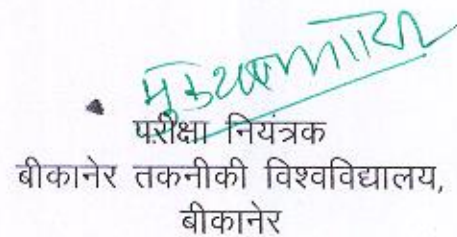 परीक्षा नियंत्रक
बीकानेर तकनीकी विश्वविद्यालय,
बीकानेर